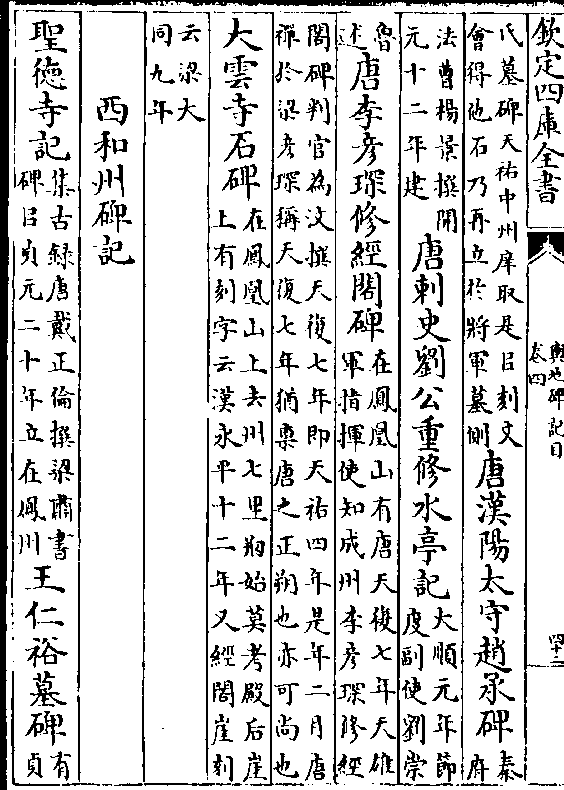 欽定四庫全書
輿地碑記目
卷四
四十二
氏墓碑天祐中州庠取是㠯刻文
會得他石乃再立於將軍墓側
唐漢陽太守趙承碑
秦
府
法曹楊景撰開
元十二年建
唐刺史劉公重修水亭記
大順元年節
度副使劉崇
魯
述
唐李彥琛修經閣碑
在鳳凰山有唐天復七年天雄
軍指揮使知成州李彥琛修經
閣碑判官為文撰天復七年即天祐四年是年二月唐
禪於梁彥琛稱天復七年猶稟唐之正朔也亦可尚也
大雲寺石碑
在鳳凰山上去州七里剏始莫考殿后崖
上有刻字云漢永平十二年又經閣崖刻
云梁大
同九年
西和州碑記
聖德寺記
集古録唐戴正倫撰梁肅書
碑㠯貞元二十年立在鳳州
王仁裕墓碑
有
貞